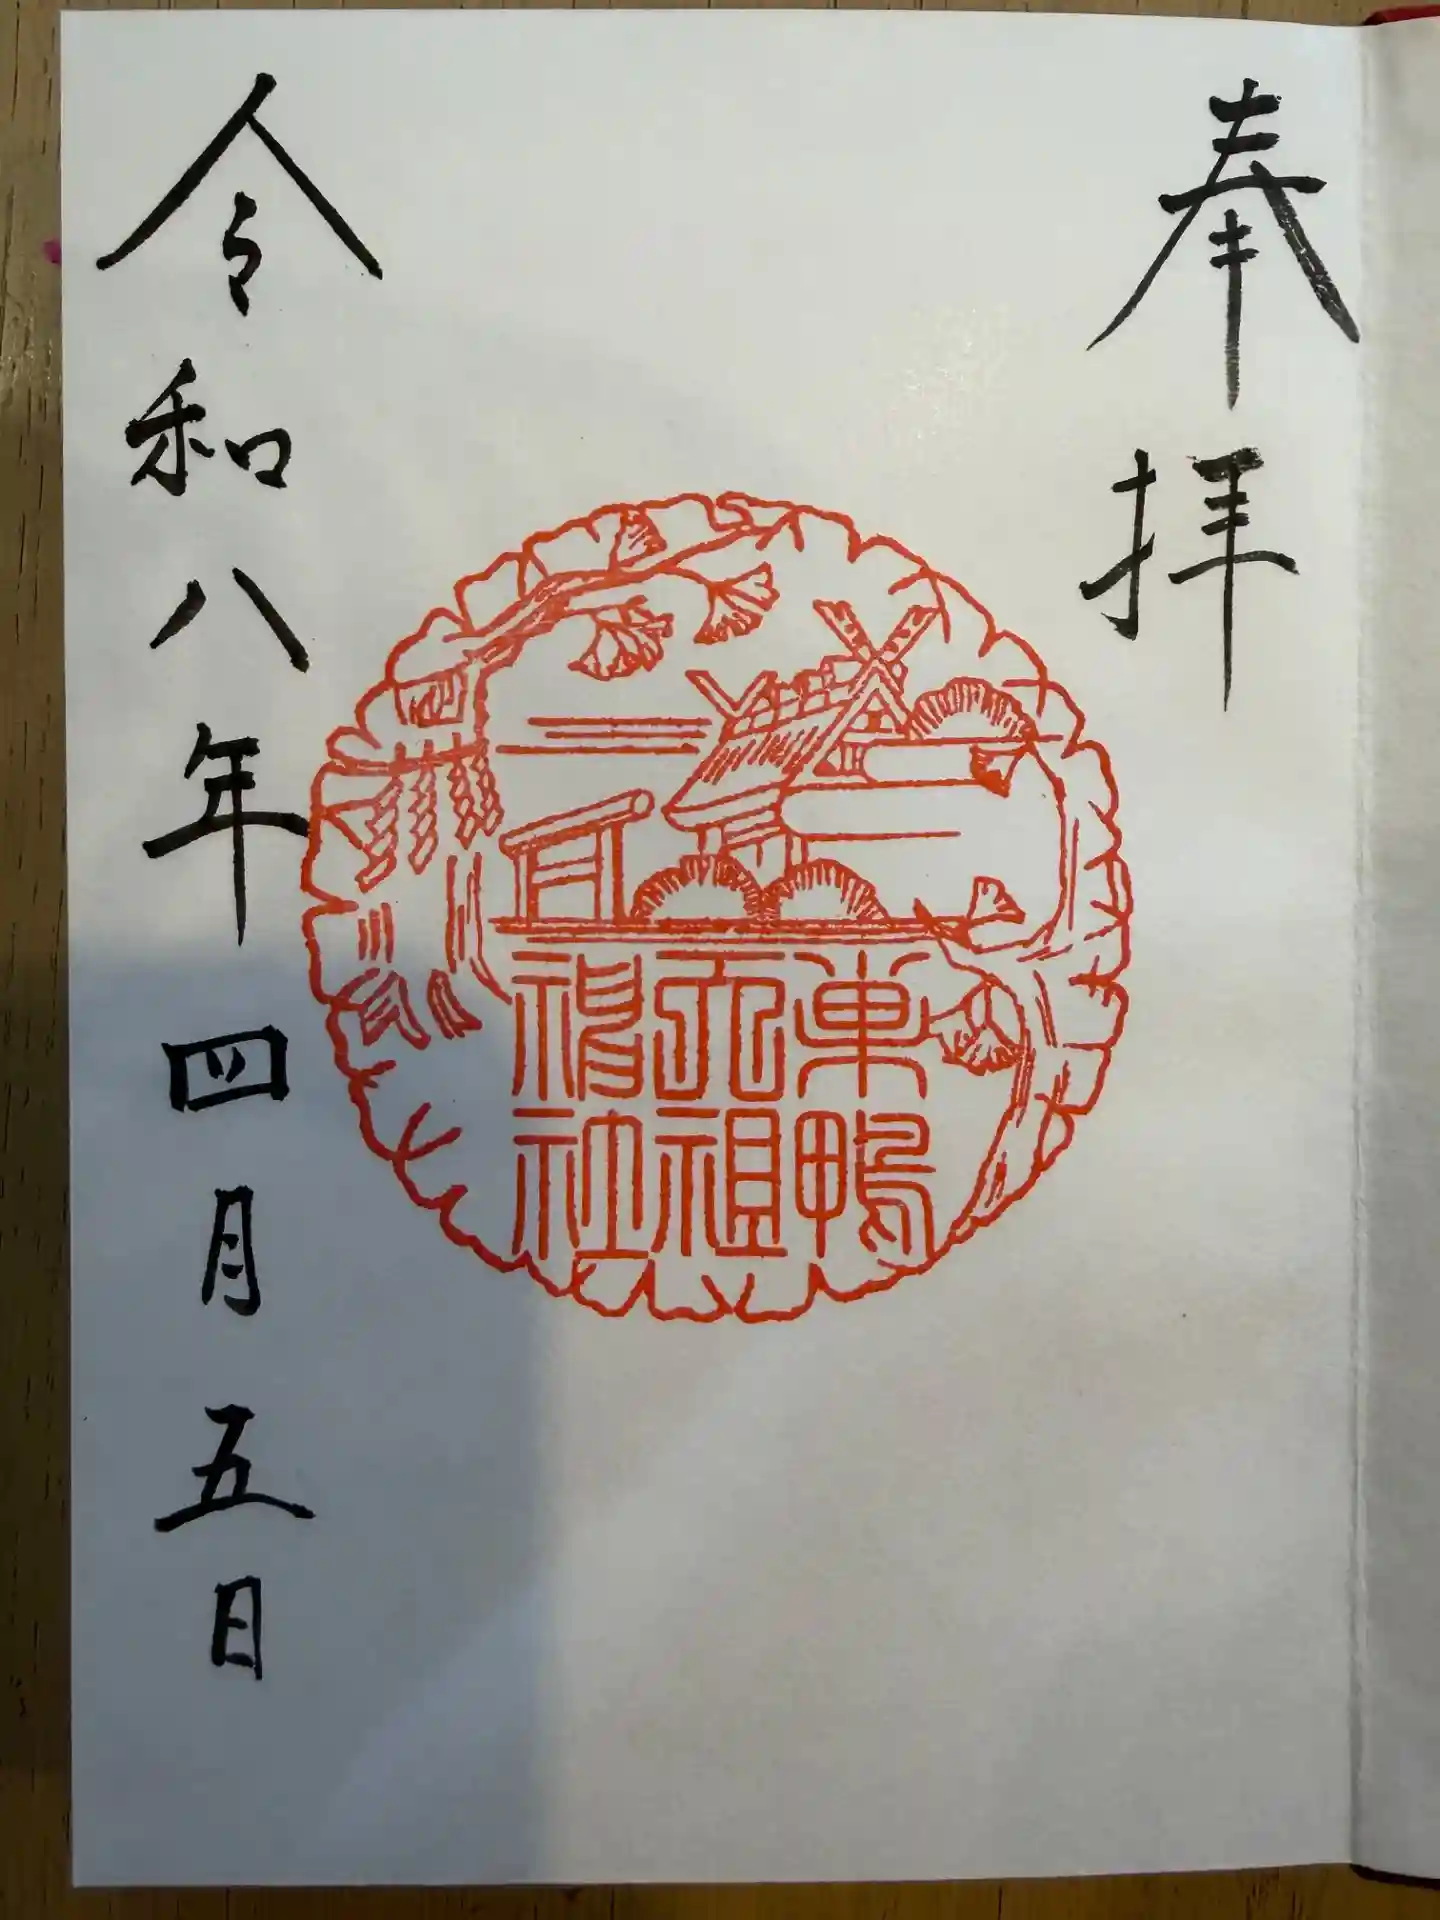 奉拝
巣鴨
天祖
神社
令和八年四月五日